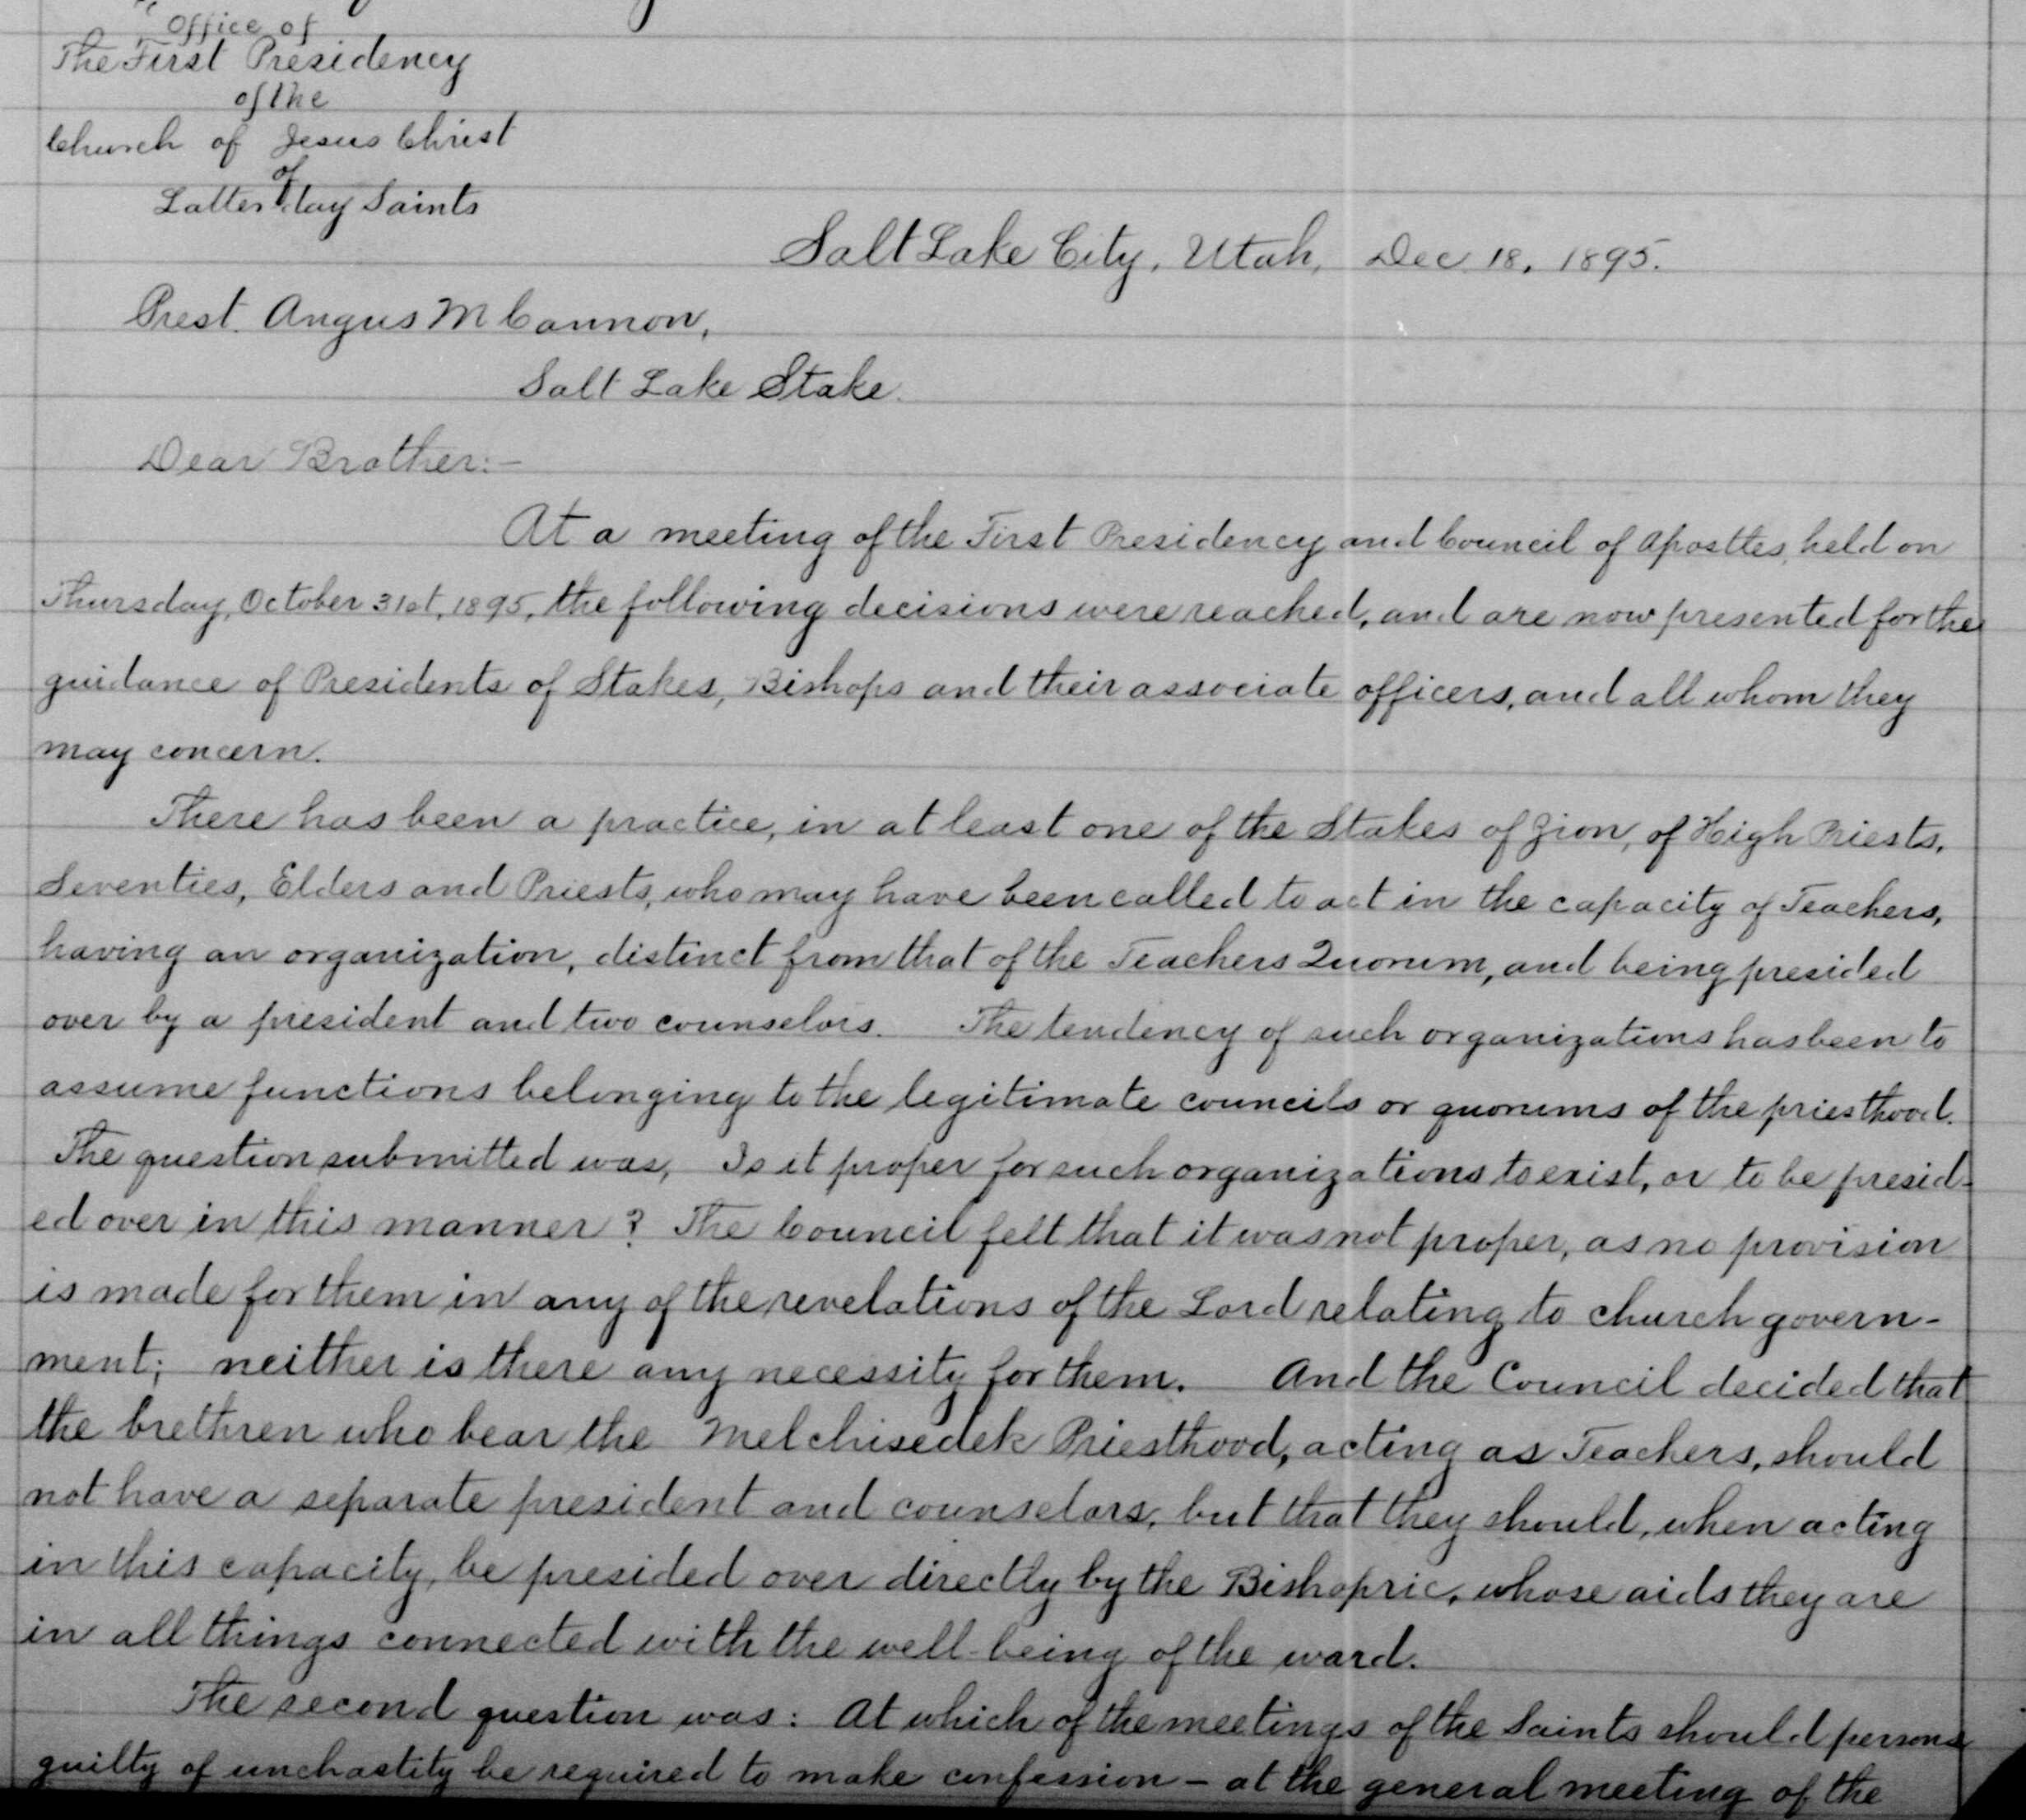 Office of
The First Presidency
of the
Church of Jesus Christ
of
Latter day Saints
Salt Lake City, Utah, Dec. 18, 1895.
Prest. Angus M Cannon,
Salt Lake Stake.
Dear Brother:—
At a meeting of the First Presidency and Council of Apostles, held on
Thursday, October 31st, 1895, the following decisions were reached, and are now presented for the
guidance of Presidents of Stakes, Bishops and their associate officers, and all whom they
may concern.
There has been a practice, in at least one of the Stakes of Zion, of High Priests,
Seventies, Elders and Priests, who may have been called to act in the capacity of Teachers,
having an organization, distinct from that of the Teachers Quorum, and being presided
over by a president and two counselors. The tendency of such organizations has been to
assume functions belonging to the legitimate councils or quorums of the priesthood.
The question submitted was, Is it proper for such organizations to exist, or to be presid-
ed over in this manner? The Council felt that it was not proper, as no provision
is made for them in any of the revelations of the Lord relating to church govern-
ment; neither is there any necessity for them. And the Council decided that
the brethren who bear the Melchisedek Priesthood, acting as Teachers, should
not have a separate president and counselors, but that they should, when acting
in this capacity, be presided over directly by the Bishopric, whose aids they are
in all things connected with the well-being of the ward.
The second question was: At which of the meetings of the Saints should persons
guilty of unchastity be required to make confession — at the general meeting of the